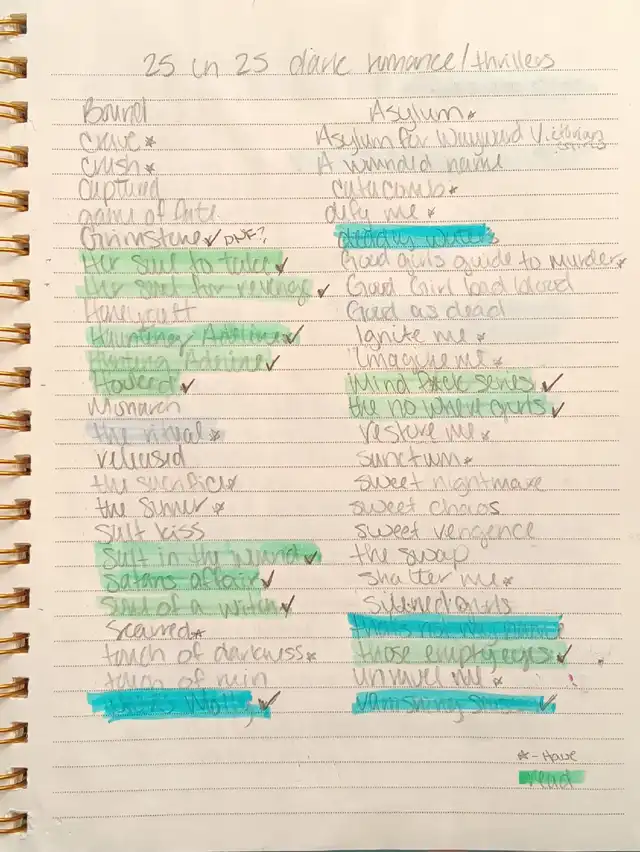 25 in 25 dark romance/thrillers
Bound
Crave *
Crush *
Captured
game of fate
Grimstone ✓ DNF?
Her Soul to take ✓
Her soul for revenge ✓
Honeycutt
Haunting Adeline ✓
Hunting Adeline ✓
✓
Monarch
the ritual *
released
the sacrifice *
the Sinner *
Salt kiss
Salt in the wound ✓
Satans affair ✓
Soul of a witch ✓
Scarred *
touch of darkness *
touch of ruin
Molly ✓
Asylum *
Asylum for Wayward Victorian Girls
A wounded name
catacomb *
defy me *
deadly
Good girls guide to murder *
Good Girl bad blood
Good as dead
Ignite me *
Imagine me *
Mind F*ck series ✓
the no where girls ✓
restore me *
Sanctum *
sweet nightmare
sweet chaos
sweet vengence
the swap
shatter me *
Silenced girls
thats not my name
those empty eyes ✓
unravel me *
Vanishing ✓
* - Have
read